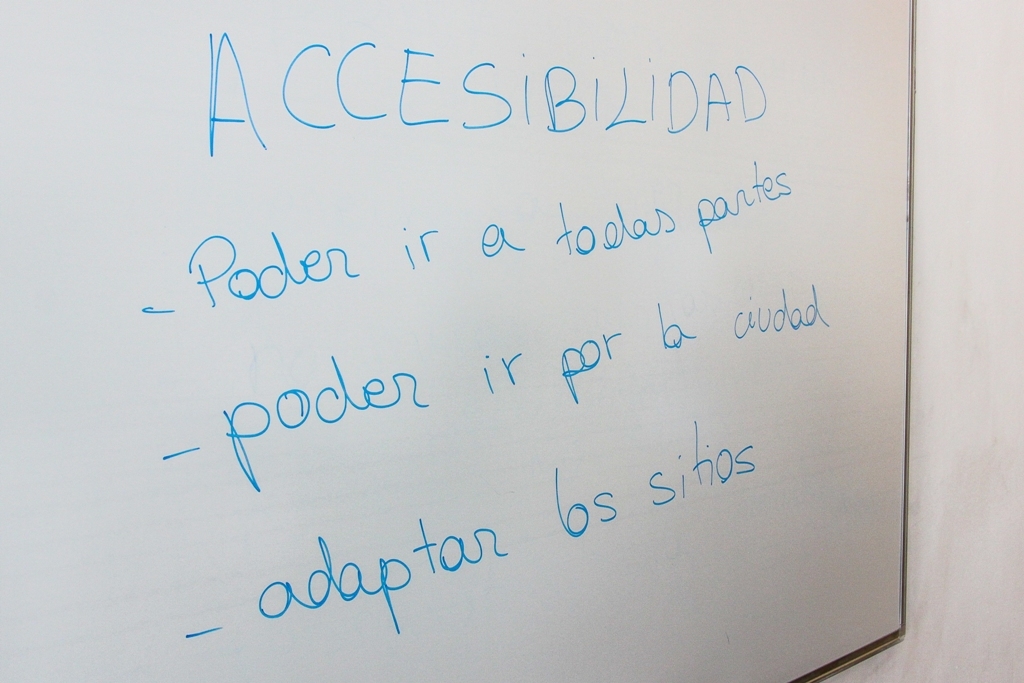 ACCESIBILIDAD
- Poder ir a todas partes
- poder ir por la ciudad
- adaptar los sitios